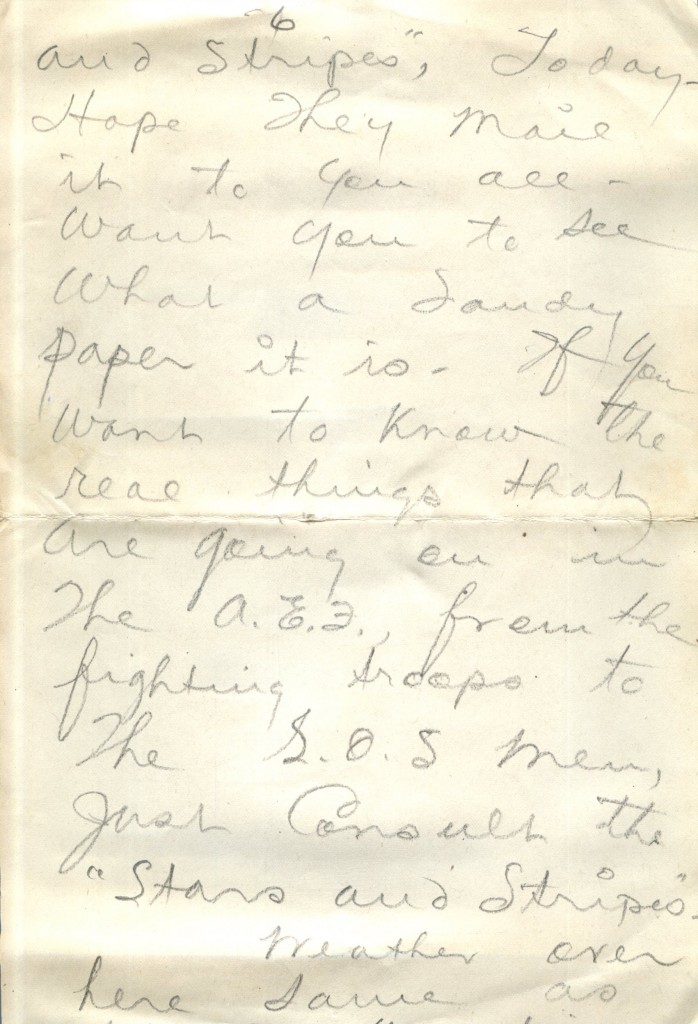 6
and Stripes", Today -
Hope They Mail
it to you all -
Want you to see
What a dandy
paper it is - If you
Want to know the
real things that
are going on in
The A.E.F., from the
fighting troops to
The S.O.S Men,
Just Consult the
"Stars and Stripes".
Weather over
here same as